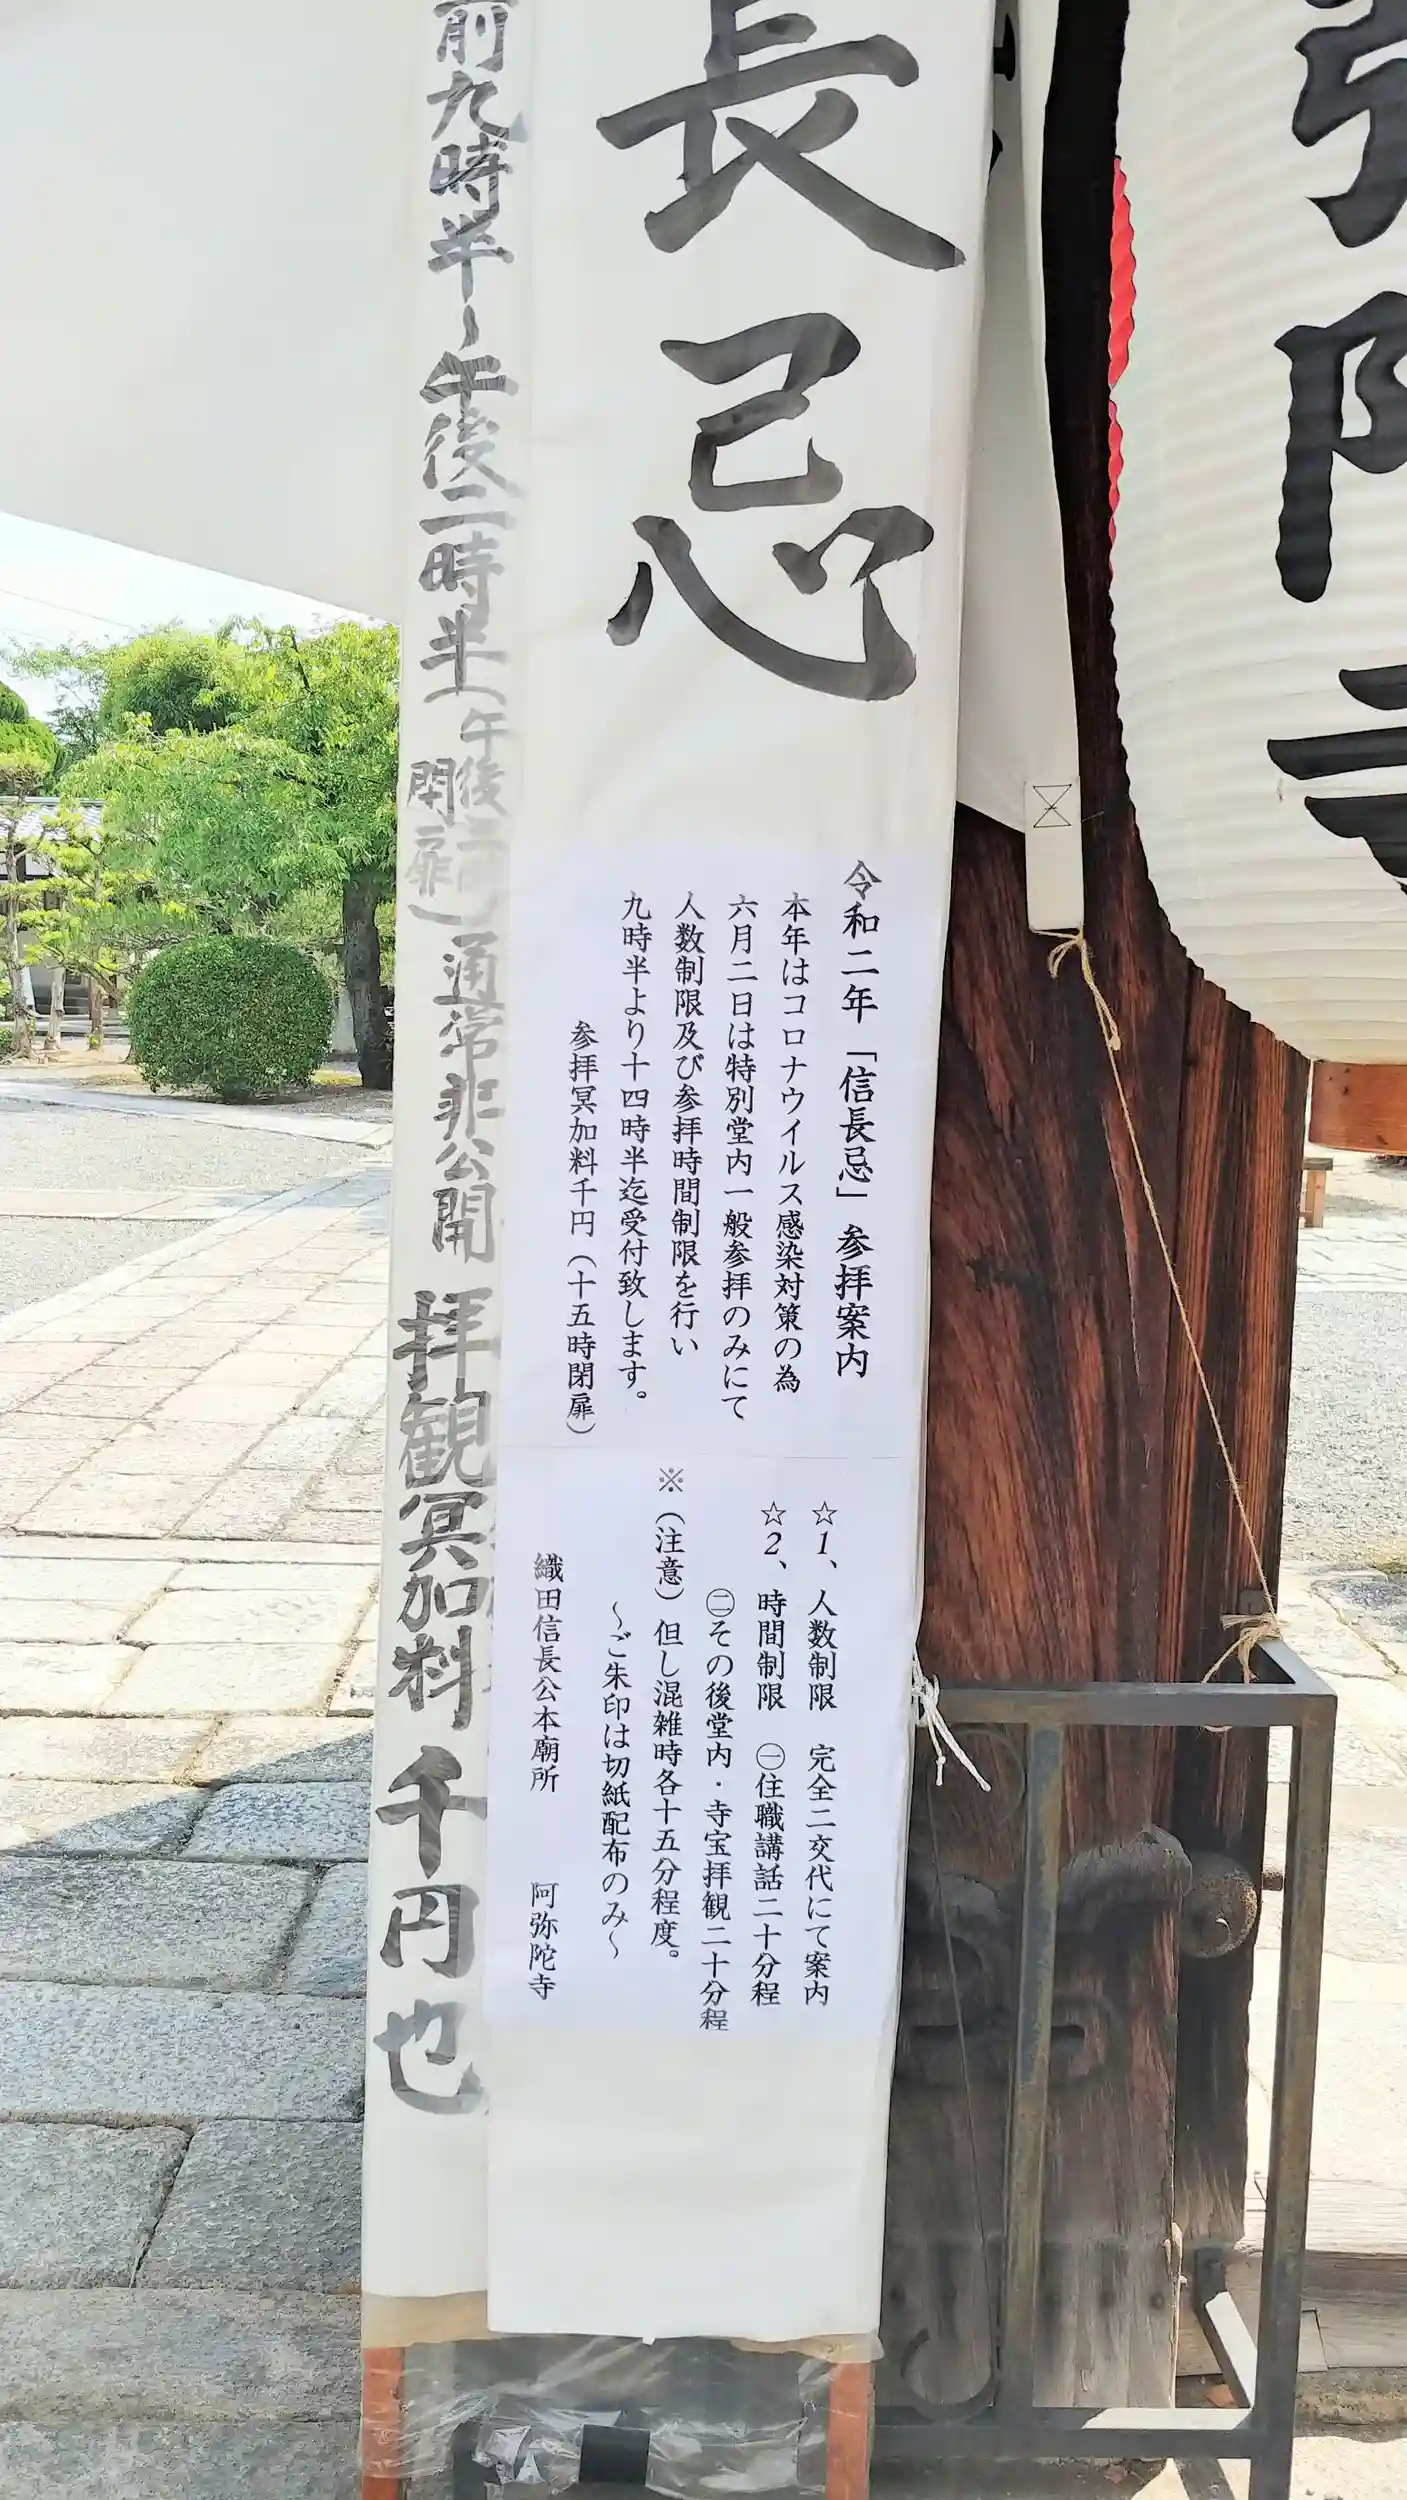 弥陀寺
長忌
令和二年「信長忌」参拝案内
本年はコロナウイルス感染対策の為
六月二日は特別堂内一般参拝のみにて
人数制限及び参拝時間制限を行い
九時半より十四時半迄受付致します。
参拝冥加料千円(十五時閉扉)
☆1、人数制限 完全二交代にて案内
☆2、時間制限 ㊀住職講話二十分程
㊁その後堂内・寺宝拝観二十分程
※(注意)但し混雑時各十五分程度。
～ご朱印は切紙配布のみ～
織田信長公本廟所 阿弥陀寺
前九時半～午後二時半(午後
閉扉)通常非公開 拝観冥加料千円也